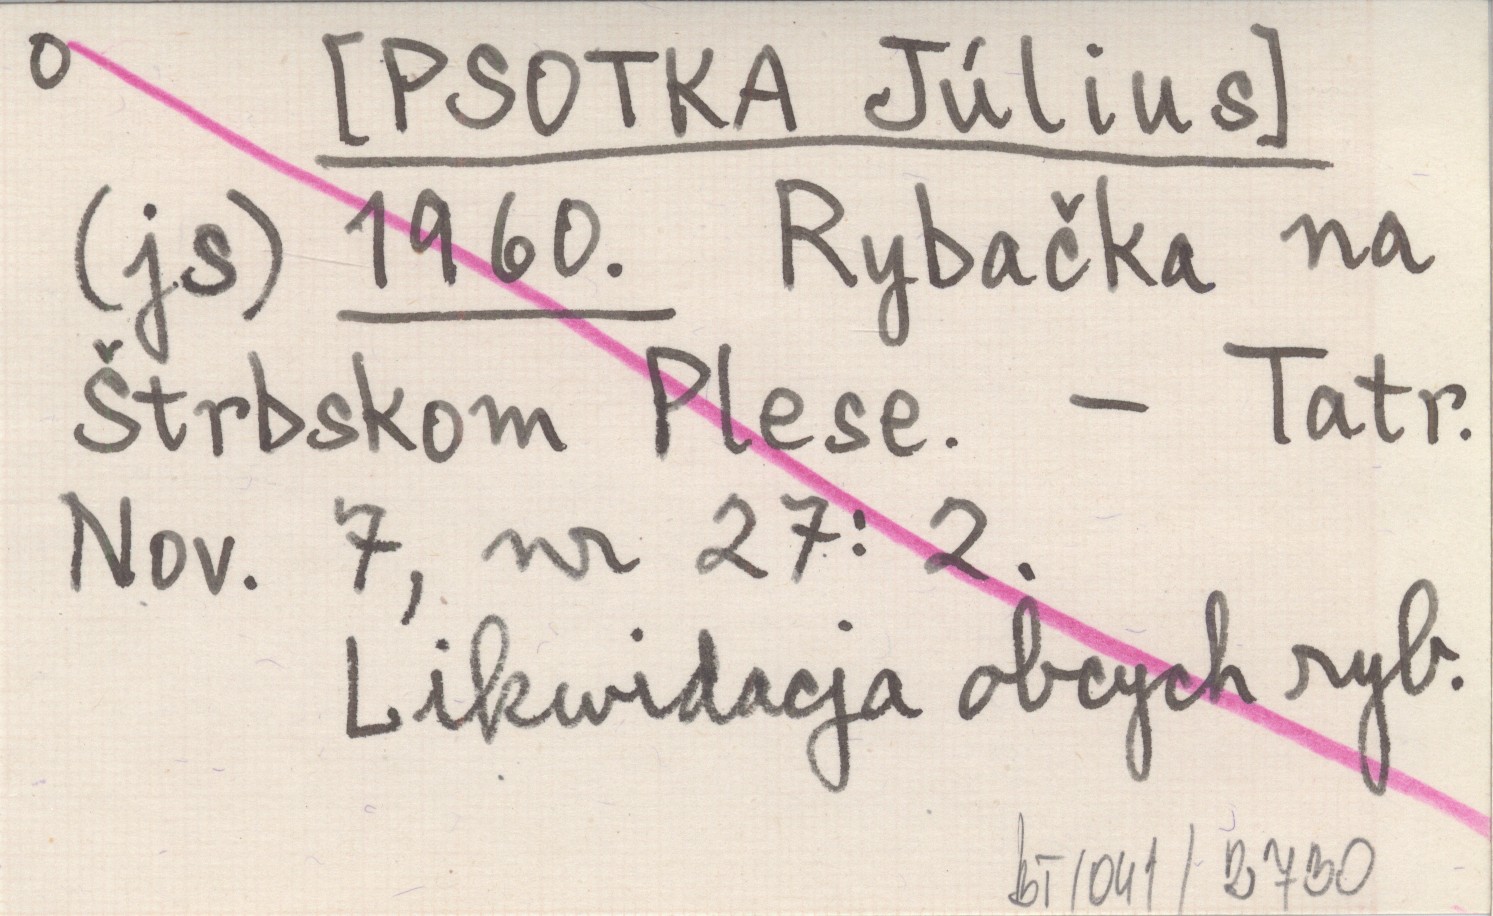 o [PSOTKA Július]
(js) 1960. Rybačka na
Štrbskom Plese. – Tatr.
Nov. 7, nr 27: 2.
Likwidacja obcych ryb.
bT/041/2730